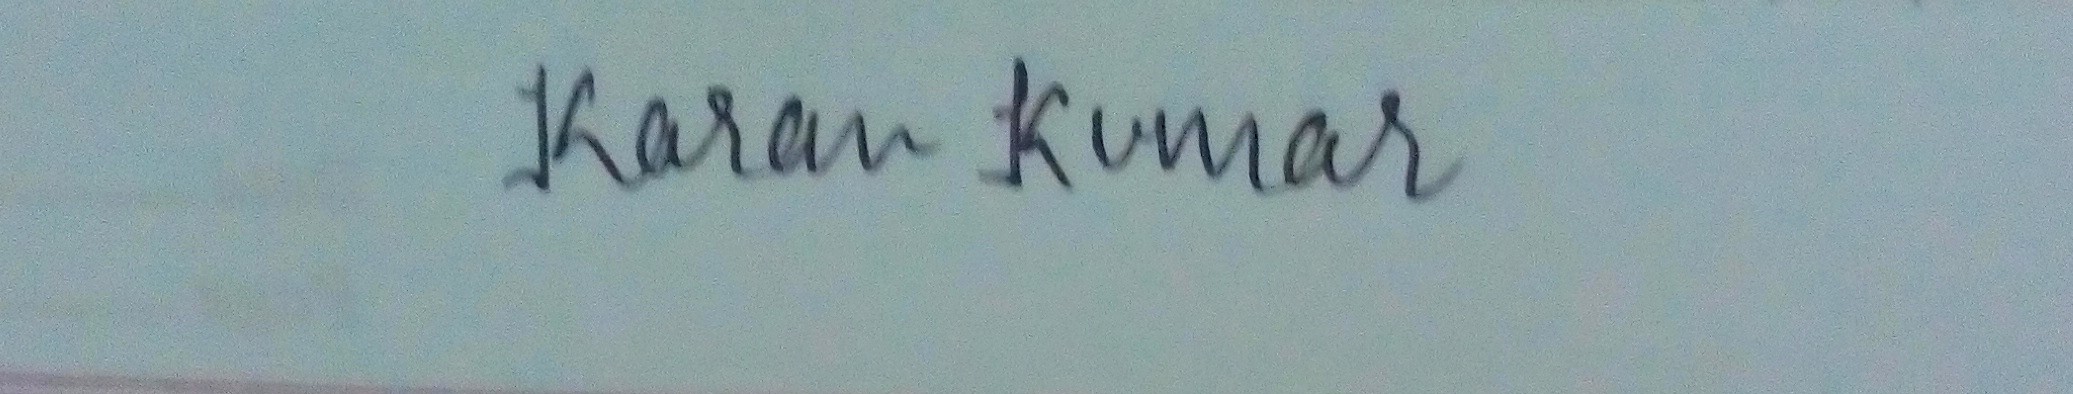 Karan Kumar